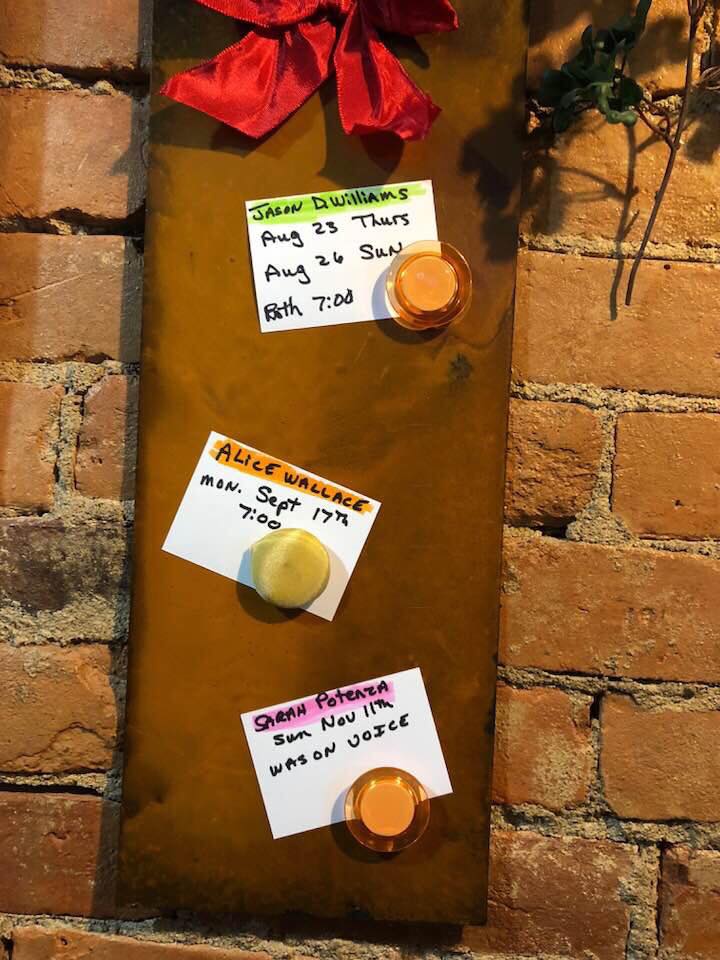 JASON D. WILLIAMS
Aug 23 Thurs
Aug 26 SUN
Both 7:00
ALICE WALLACE
MON. Sept 17Th
7:00
SARAH POTENZA
Sun Nov 11th
WAS ON VOICE